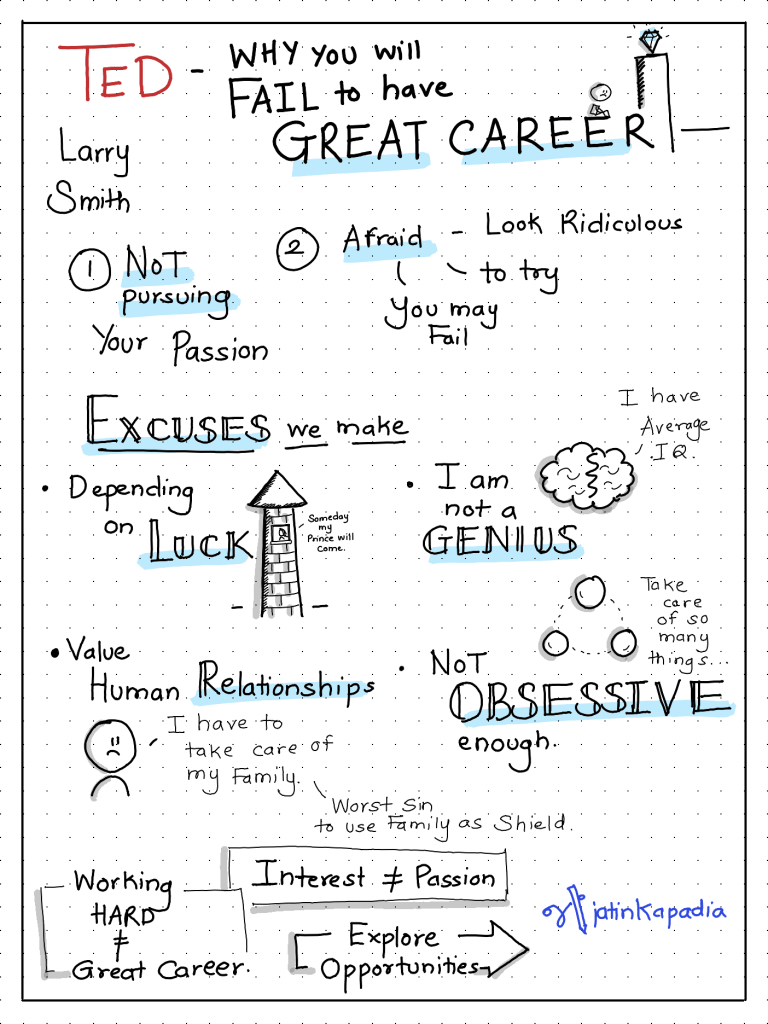 TED - WHY you will
FAIL to have
GREAT CAREER
Larry
Smith
1 NOT
pursuing
Your Passion
2 Afraid - Look Ridiculous
to try
You may
Fail
EXCUSES we make
• Depending
on LUCK
Someday
my
Prince will
come.
• I am
not a
GENIUS
I have
Average
IQ.
• Value
Human Relationships
I have to
take care of
my Family.
Worst Sin
to use Family as Shield.
• NOT
OBSESSIVE
enough.
Take
care
of so
many
things...
Working
HARD
≠
Great Career.
Interest ≠ Passion
Explore
Opportunities
jatinkapadia